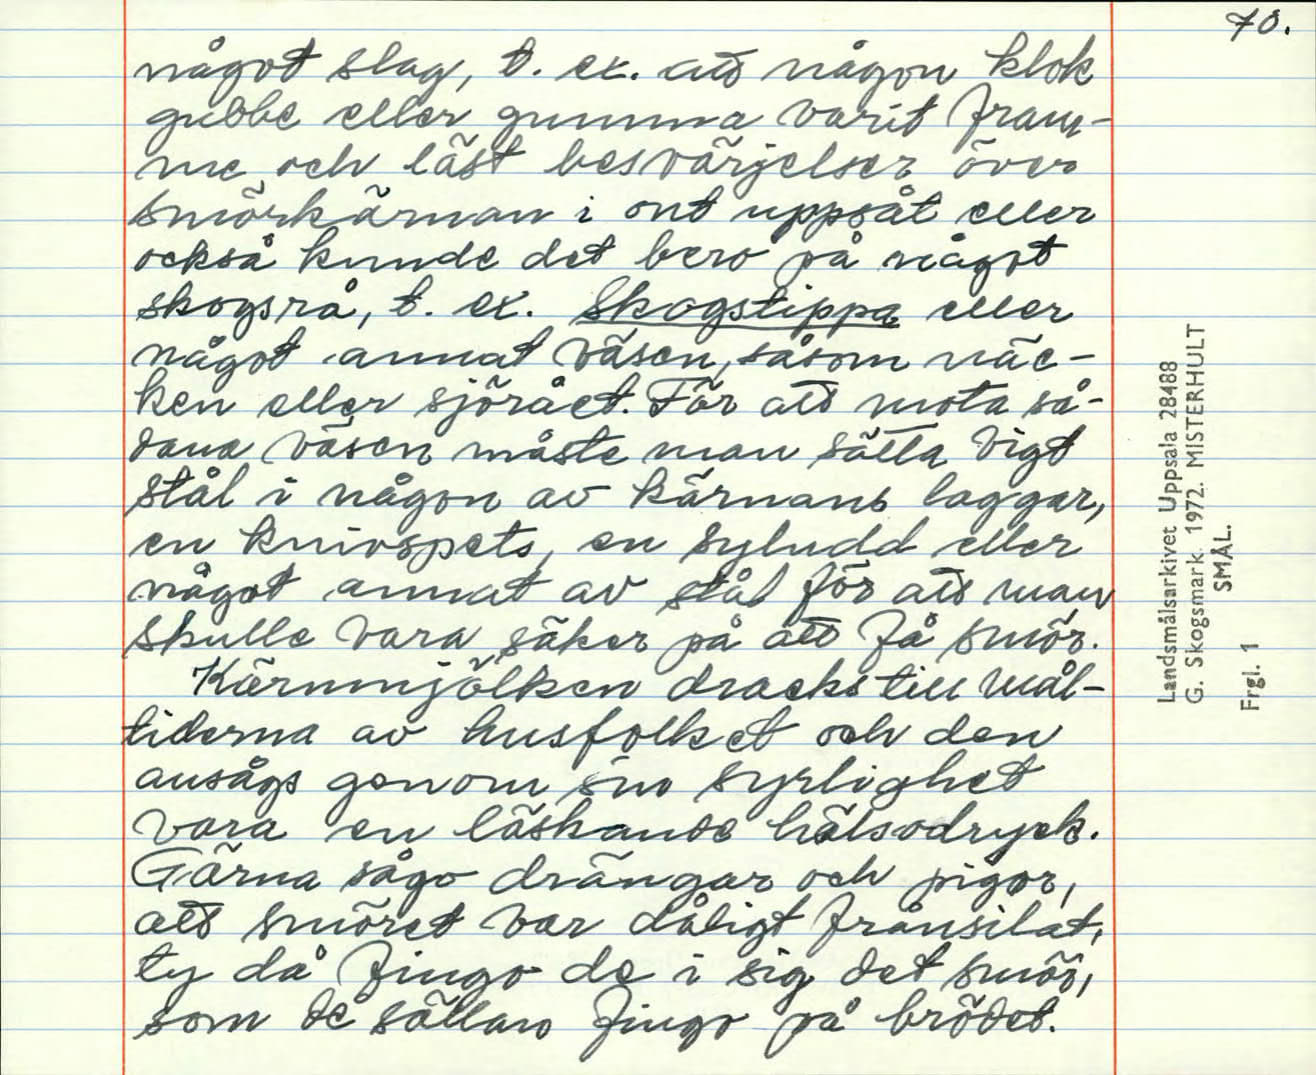 70.
något slag, t. ex. att någon klok
gubbe eller gumma varit fram-
me och läst besvärjelser över
smörkärnan i ont uppsåt eller
också kunde det bero på något
skogsrå, t. ex. Skogstippa eller
något annat väsen, såsom näc-
ken eller sjörået. För att mota så-
dana väsen måste man sätta vigt
stål i någon av kärnans laggar,
en knivspets, en syludd eller
något annat av stål för att man
skulle vara säker på att få smör.
Kärnmjölken dracks till mål-
tiderna av husfolket och den
ansågs genom sin syrlighet
vara en läskande hälsodryck.
Gärna sågo drängar och pigor,
att smöret var dåligt frånsilat,
ty då fingo de i sig det smör,
som de sällan fingo på brödet.
Landsmålsarkivet Uppsala 28488
G. Skogsmark. 1972. MISTERHULT
SMÅL.
Frgl. 1